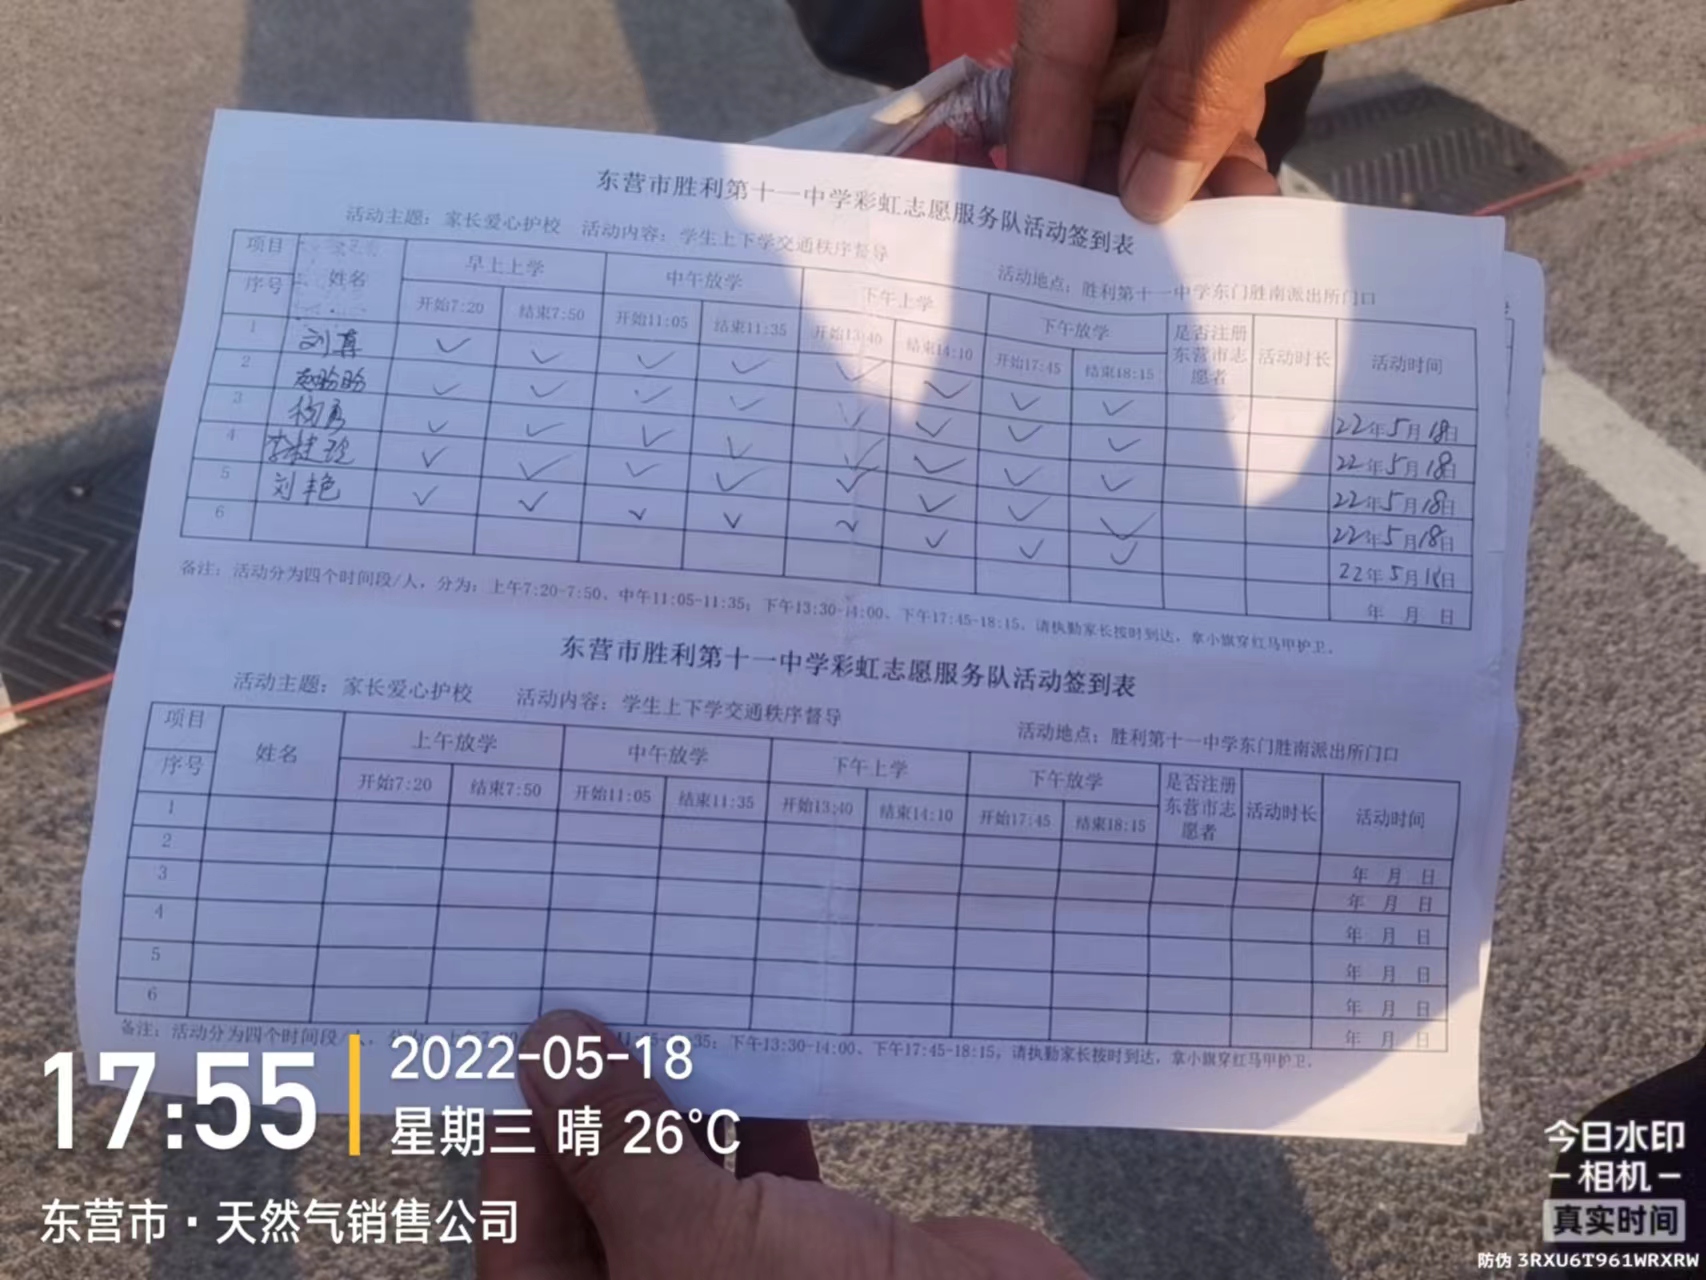 东营市胜利第十一中学彩虹志愿服务队活动签到表
活动主题：家长爱心护校 活动内容：学生上下学交通秩序督导 活动地点：胜利第十一中学东门胜南派出所门口
项目 姓名 早上上学 中午放学 下午上学 下午放学 是否注册东营市志愿者 活动时长 活动时间
序号 开始7:20 结束7:50 开始11:05 结束11:35 开始13:40 结束14:10 开始17:45 结束18:15
1 刘 ✓ ✓ ✓ ✓ ✓ ✓ ✓ ✓ 22年5月18日
2 赵盼盼 ✓ ✓ ✓ ✓ ✓ ✓ ✓ ✓ 22年5月18日
3 杨勇 ✓ ✓ ✓ ✓ ✓ ✓ ✓ ✓ 22年5月18日
4 李桂玲 ✓ ✓ ✓ ✓ ✓ ✓ ✓ ✓ 22年5月18日
5 刘艳 ✓ ✓ ✓ ✓ ✓ ✓ ✓ ✓ 22年5月18日
6 年 月 日
备注：活动分为四个时间段/人，分为：上午7:20-7:50、中午11:05-11:35；下午13:30-14:00、下午17:45-18:15，请执勤家长按时到达，拿小旗穿红马甲护卫。
东营市胜利第十一中学彩虹志愿服务队活动签到表
活动主题：家长爱心护校 活动内容：学生上下学交通秩序督导 活动地点：胜利第十一中学东门胜南派出所门口
项目 姓名 上午放学 中午放学 下午上学 下午放学 是否注册东营市志愿者 活动时长 活动时间
序号 开始7:20 结束7:50 开始11:05 结束11:35 开始13:40 结束14:10 开始17:45 结束18:15
1 年 月 日
2 年 月 日
3 年 月 日
4 年 月 日
5 年 月 日
6 年 月 日
备注：活动分为四个时间段/人，分为：上午7:20 11:05-11:35；下午13:30-14:00、下午17:45-18:15，请执勤家长按时到达，拿小旗穿红马甲护卫。
17:55
2022-05-18
星期三 晴 26℃
东营市·天然气销售公司
今日水印
-相机-
真实时间
防伪 3RXU6T961WRXRW